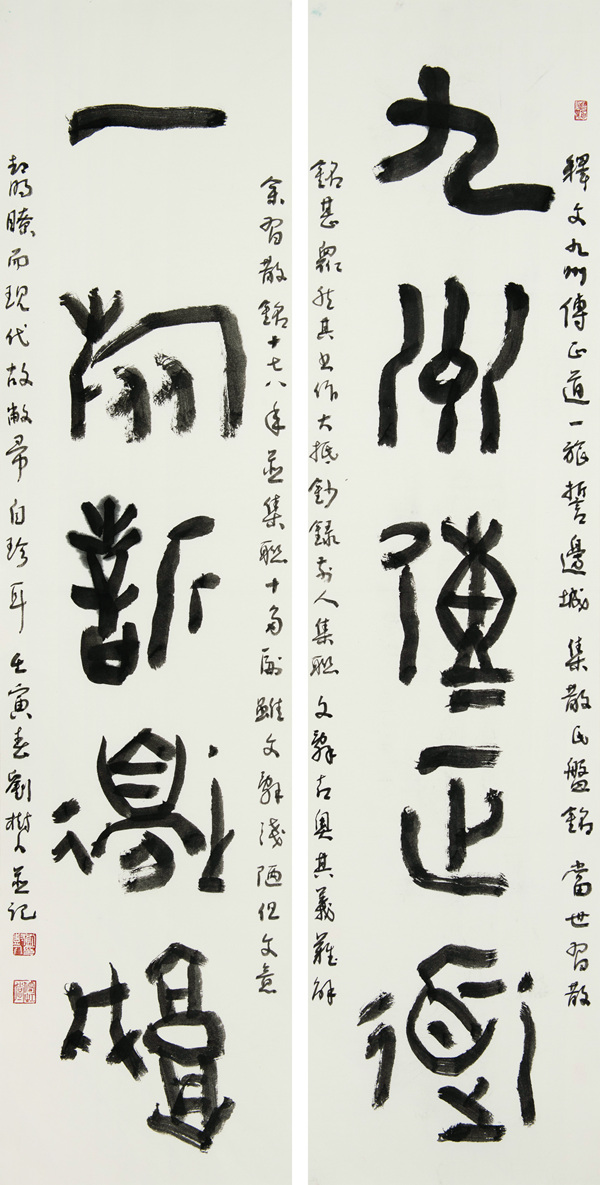 釋文九州傳正道一旅誓邊城 集散氏盤銘 當世習散
九州傳正道
銘甚眾然其书作大抵鈔録前人集聯文辭古奧其義難解
余習散銘十七八年並集聯十多副雖文辭淺陋但文意
一旅誓邊城
却明瞭而現代故敝帚自珍耳 壬寅春劉樹人並記